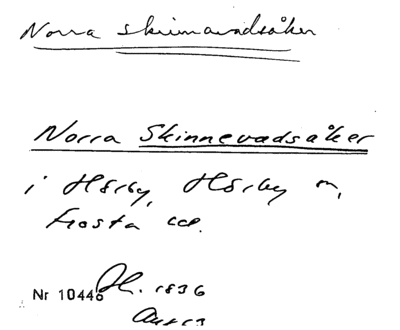 Norra skinnavadsåker
Norra Skinnevadsåker
i Hörby, Hörby sn,
Frosta hd.
Nr 10446 H. 1936